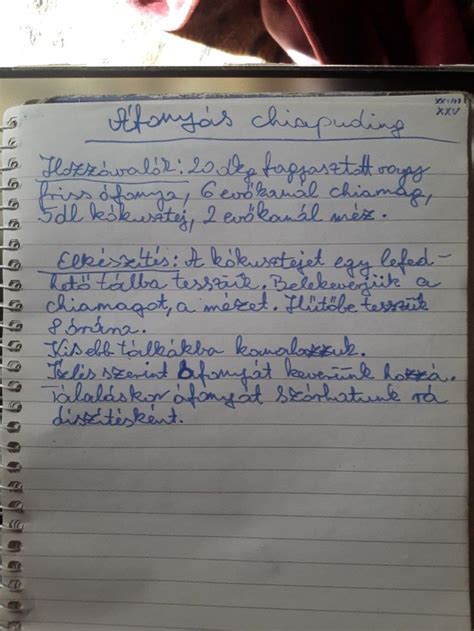 XXV
Áfonyás chiapuding
Hozzávalók: 20 dkg fagyasztott vagy
friss áfonya, 6 evőkanál chiamag,
5dl kókusztej, 2 evőkanál méz.
Elkészítés: A kókusztejet egy lefed-
hető tálba tesszük. Belekeverjük a
chiamagot, a mézet. Hűtőbe tesszük
8 órára.
Kisebb tálkákba kanalazzuk.
Izlés szerint áfonyát keverünk hozzá.
Tálaláskor áfonyát szórhatunk rá
díszítésként.